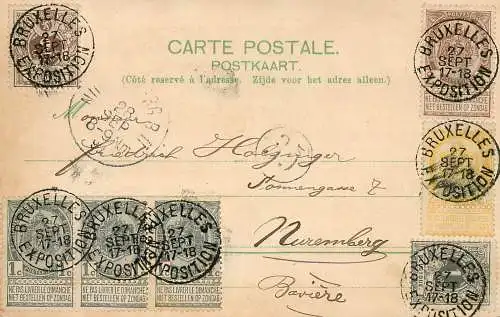 CARTE POSTALE.
POSTKAART.
(Côté reservé à l'adresse. Zijde voor het adres alleen.)
Monsieur
Friedrich Holzinger
Tonnengasse 7
Nuremberg
Bavière
BRUXELLES
27
SEPT
17-18
EXPOSITION
BRUXELLES
27
SEPT
17-18
EXPOSITION
NE PAS LIVRER LE DIMANCHE
NIET BESTELLEN OP ZONDAG
BRUXELLES
27
SEPT
17-18
EXPOSITION
BRUXELLES
27
SEPT
17-18
EXPOSITION
NE PAS LIVRER LE DIMANCHE
NIET BESTELLEN OP ZONDAG
BRUXELLES
27
SEPT
17-18
EXPOSITION
1c
NE PAS LIVRER LE DIMANCHE
NIET BESTELLEN OP ZONDAG
BRUXELLES
27
SEPT
17-18
EXPOSITION
NE PAS LIVRER LE DIMANCHE
NIET BESTELLEN OP ZONDAG
BRUXELLES
27
SEPT
17-18
EXPOSITION
NE PAS LIVRER LE DIMANCHE
NIET BESTELLEN OP ZONDAG